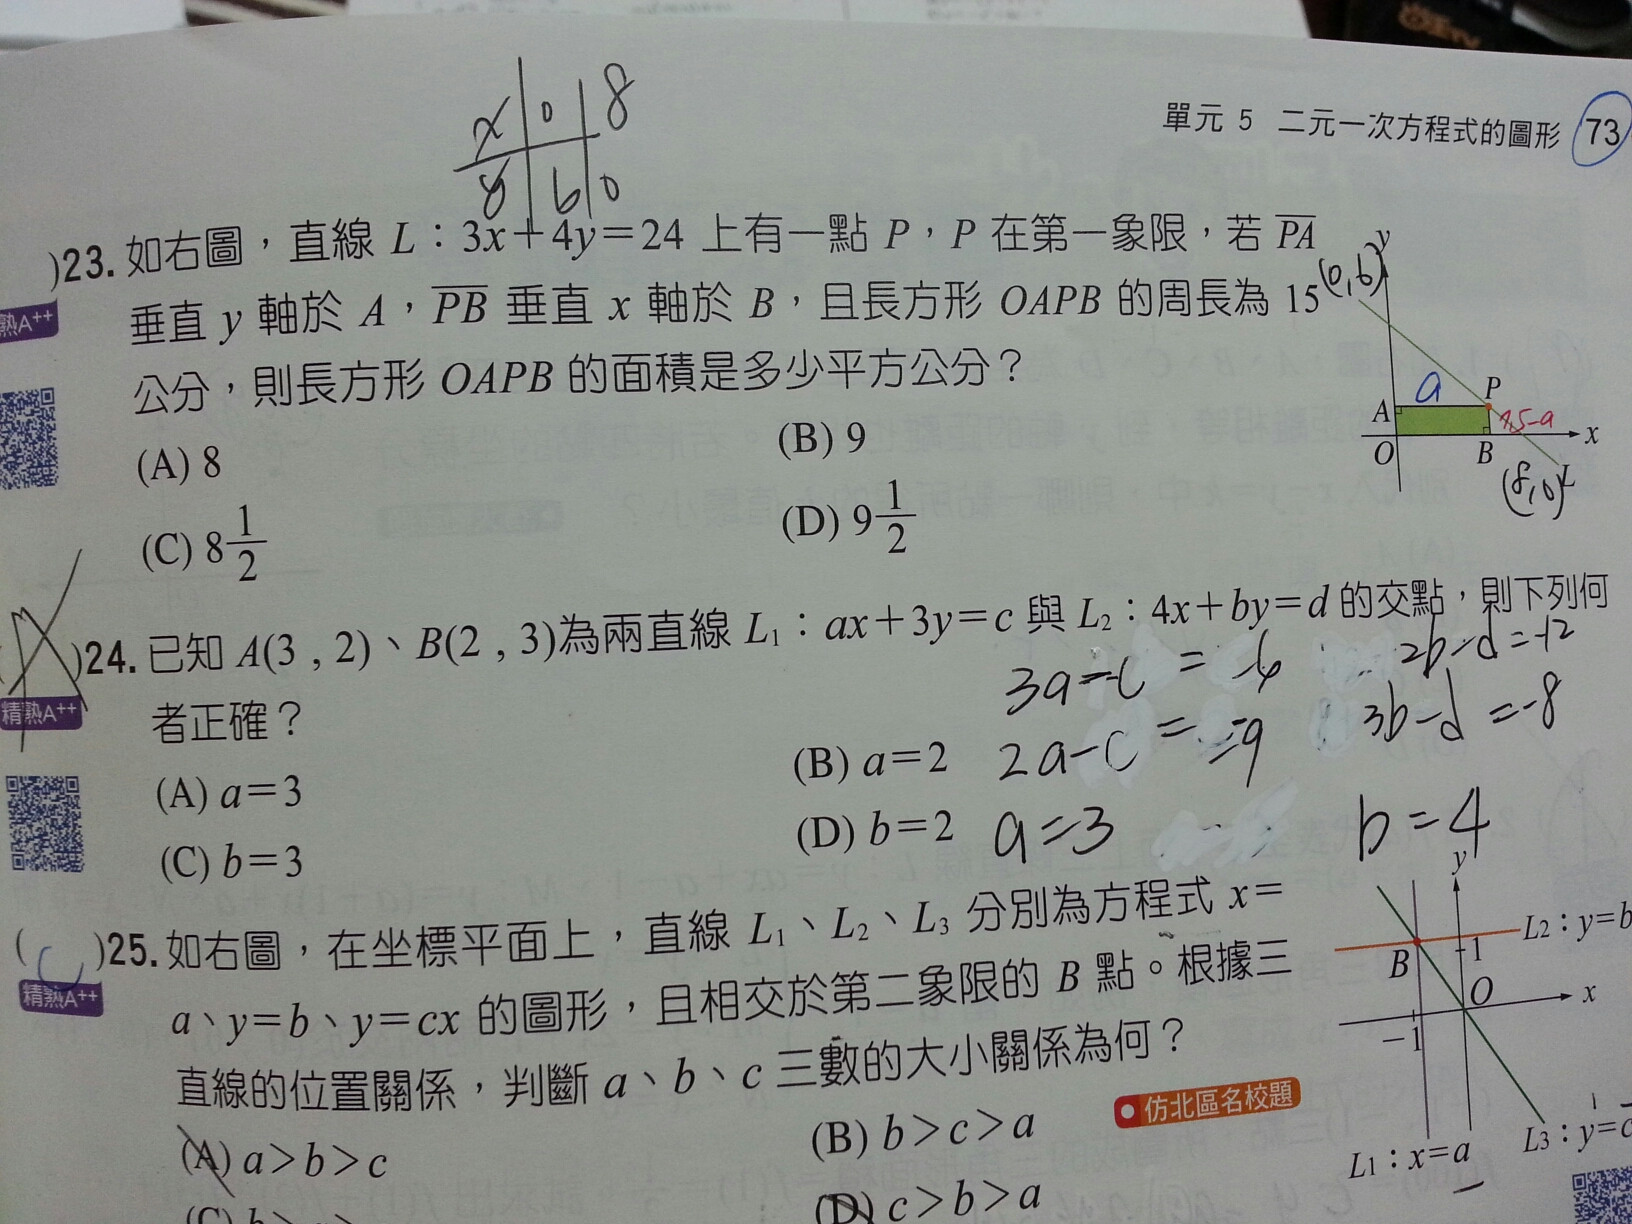 單元 5 二元一次方程式的圖形 73
x 0 8
y 6 0
)23. 如右圖，直線 L：3x＋4y＝24 上有一點 P，P 在第一象限，若 PA
熟A++
垂直 y 軸於 A，PB 垂直 x 軸於 B，且長方形 OAPB 的周長為 15
公分，則長方形 OAPB 的面積是多少平方公分？
(A) 8
(B) 9
(C) 8 1/2
(D) 9 1/2
y
(0,6)
a
A
P
7.5-a
x
O
B
(8,0)
L
)24. 已知 A(3 , 2)、B(2 , 3)為兩直線 L1：ax＋3y＝c 與 L2：4x＋by＝d 的交點，則下列何
精熟A++
者正確？
3a-c=-6
2b-d=-12
2a-c=-9
3b-d=-8
(A) a＝3
(B) a＝2
(C) b＝3
(D) b＝2
a=3
b=4
( C )25. 如右圖，在坐標平面上，直線 L1、L2、L3 分別為方程式 x＝
精熟A++
a、y＝b、y＝cx 的圖形，且相交於第二象限的 B 點。根據三
直線的位置關係，判斷 a、b、c 三數的大小關係為何？
仿北區名校題
(A) a＞b＞c
(B) b＞c＞a
(D) c＞b＞a
y
L2：y＝b
B
1
O
x
－1
L1：x＝a
L3：y＝